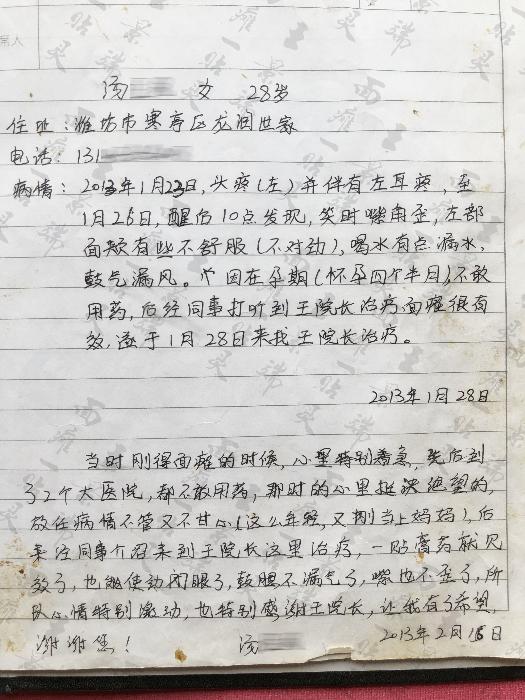 汤 女 28岁
住址：潍坊市寒亭区龙润世家
电话：131
病情：2013年1月23日，头疼（左）并伴有左耳疼，至
1月26日，醒后10点发现，笑时嘴角歪，左部
面颊有些不舒服（不对劲），喝水有点漏水，
鼓气漏风。因在孕期（怀孕四个半月）不敢
用药，后经同事打听到王院长治疗面瘫很有
效，遂于1月28日来找王院长治疗。
2013年1月28日
当时刚得面瘫的时候，心里特别着急，先后到
了2个大医院，都不敢用药，那时的心里挺绝望的，
放任病情不管又不甘心（这么年轻，又刚当上妈妈），后
来经同事介绍来到王院长这里治疗，一贴膏药就见
效了，也能使劲闭眼了，鼓腮不漏气了，嘴也不歪了，所
以心情特别激动，也特别感谢王院长，让我有了希望，
谢谢您！ 汤 2013年2月16日